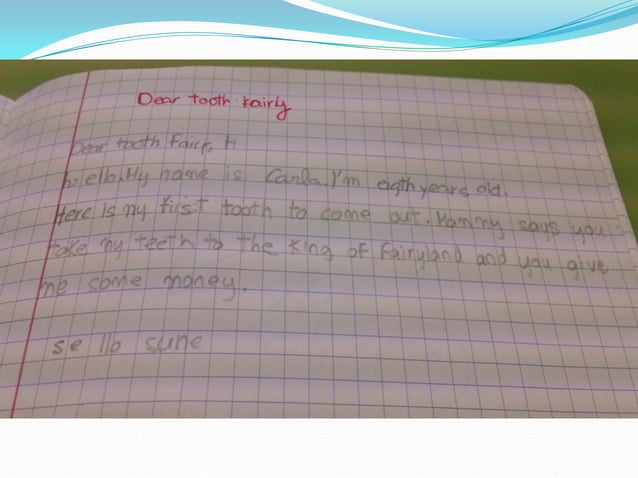 Dear tooth Fairly
Dear tooth Fairy, H
hello. My name is Carla. I'm eigth years old.
Here is my first tooth to come out. Mommy says you
take my teeth to the King of Fairyland and you give
me some money.
se llo sune